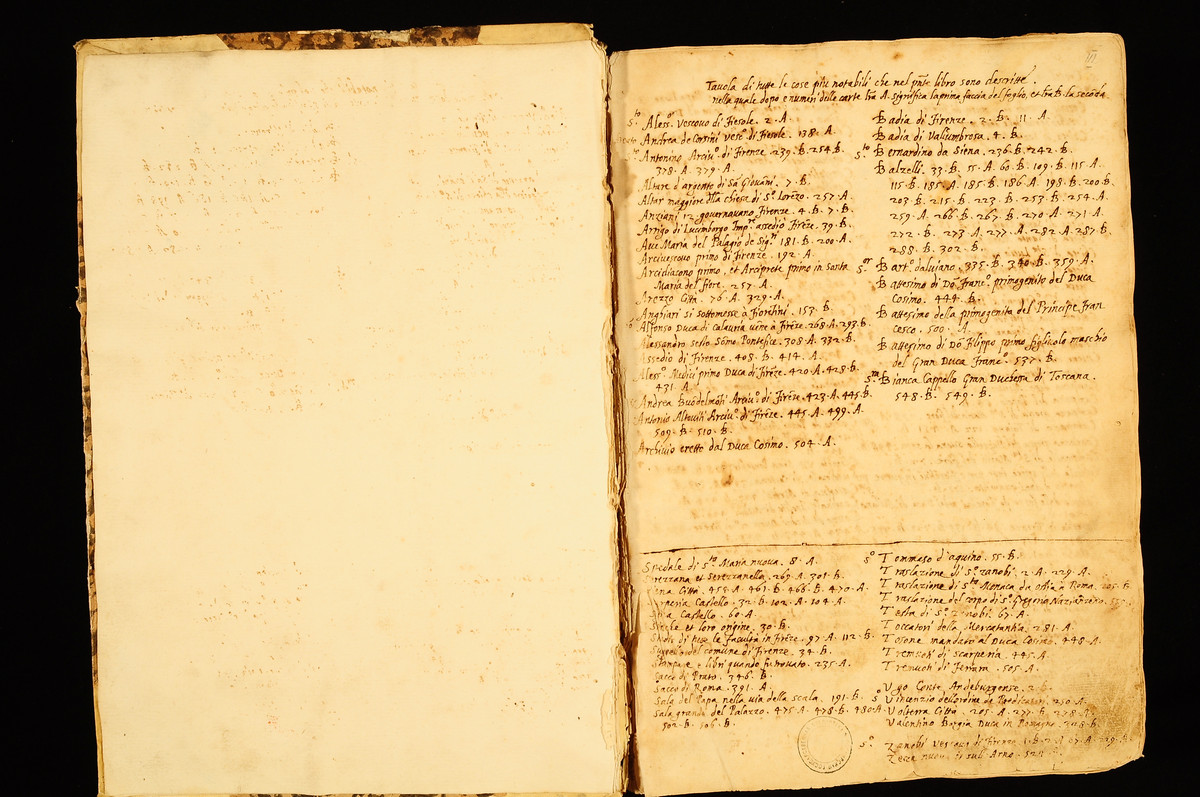 Tavola di tutte le cose più notabili che nel pnte libro sono descritte.
nella quale dopo e numeri delle carte lra A. significa la prima faccia del foglio, et lra B. la seconda
Sto Alesso. Vescovo di Fiesole. 2. A.
Andrea de Corsini vescº di Fiesole. 138. A.
Antonino Arcivº di Firenze 239. B. 254. B.
378. A. 379. A.
Altare d'argento di San Giovāni. 7. B.
Altar maggiore della chiesa di Sº Lorēzo. 257. A.
Anziani 12 governavano Firenze. 4. B. 7. B.
Arrigo di Lucemborgo Impre assedio Firēze. 39. B.
Ave Maria del Palagio de Sigri 181. B. 200. A.
Arcivescovo primo di Firenze. 192. A.
Arcidiacono primo, et Arciprete primo in Santa
Maria del fiore. 257. A.
Arezzo Città. 76. A. 329. A.
Anghiari si sottomesse à Fiorētini. 153. B.
Alfonso Duca di Calauria vēne à Firēze. 268. A. 293. B.
Alessandro sesto Sōmo Pontefice. 308. A. 332. B.
Assedio di Firenze. 408. B. 414. A.
Alessº Medici primo Duca di Firēze. 420. A. 428. B.
431. A.
Andrea Buōdelmōti Arcivº di Firēze. 423. A. 445. B.
Antonio Altoviti Arcivº di Firēze. 445. A. 499. A.
509. B. 510. B.
Archivio eretto dal Duca Cosimo. 504. A.
Badia di Firenze. 2. B. 11. A.
Badia di Vallumbrosa. 4. B.
Sto Bernardino da Siena. 236. B. 242. B.
Balzelli. 33. B. 55. A. 60. B. 109. B. 115. A.
115. B. 185. A. 185. B. 186. A. 198. B. 200. B.
203. B. 215. B. 223. B. 253. B. 254. A.
259. A. 266. B. 267. B. 270. A. 271. A.
272. B. 273. A. 277. A. 282. A. 287. B.
288. B. 302. B.
Sor Bartº dalviano. 335. B. 340. B. 359. A.
Battesimo di Dō Francº primogenito del Duca
Cosimo. 444. B.
Battesimo della primogenita del Principe Fran
cesco. 500. A.
Battesimo di Dō Filippo primo figliolo maschio
del Gran Duca Francº. 537. B.
Sra Bianca Cappello Gran Duchessa di Toscana.
548. B. 549. B.
Spedale di Sta Maria nuova. 8. A.
et Serezzanella. 269. A. 301. B.
Città. 458. A. 461. B. 466. B. 470. A.
Castello. 32. B. 102. A. 104. A.
Castello. 60. A.
et loro origine. 30. B.
Studio di tutte le facultà in Firēze. 97. A. 112. B.
del comune di Firenze. 34. B.
Stampare e libri quando fu trovato. 235. A.
Sacco di Prato. 346. B.
Sacco di Roma. 391. A.
Sala del Papa nella via della scala. 191. B.
Sala grande del Palazzo. 475. A. 478. B. 480. A.
502. B. 506. B.
Sº Tommaso d'aquino. 55. B.
Traslazione di Sº Zanobi. 2. A. 229. A.
Traslazione di Sta Monaca da Ostia à Roma.
Traslazione del corpo di Sº Gregorio Nazianzeno.
Testa di Sº Zanobi. 67. A.
Toccatori della Mercatantia. 281. A.
Tosone mandato al Duca Cosimo. 448. A.
Tremuoti di scarperia. 445. A.
Tremuoti di Ferrara. 505. A.
Ugo Conte
Sº Vincenzio dell'ordine de Predicatori. 250. A.
Volterra Città. 205. A. 277. B. 278. A.
Valentino Borgia Duca in Romagna. 318. B.
Sº Zanobi Vescovo di Firenze. 1. B. 2. A. 67. A.
Zecca